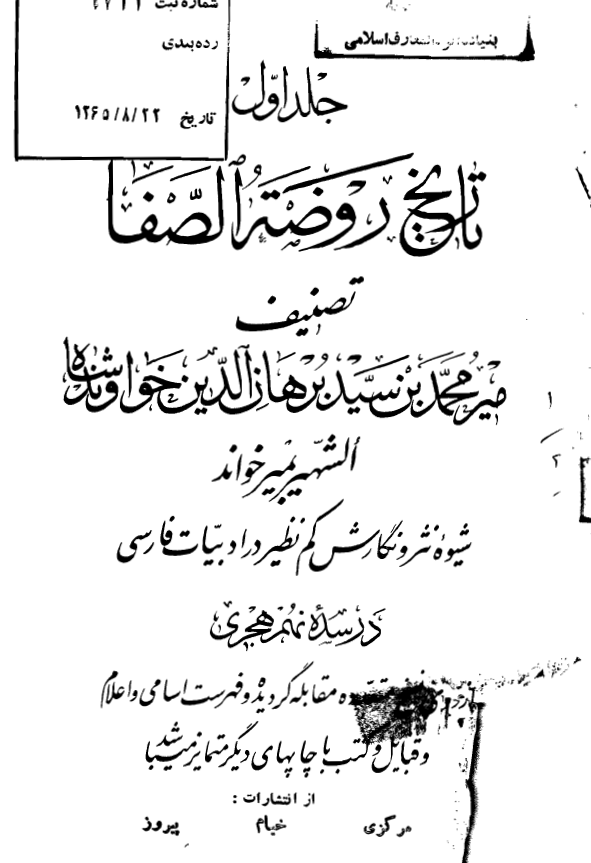 شماره ثبت
بنیاد دائرة المعارف اسلامی
رده‌بندی
تاریخ ۱۳۶۵/۸/۲۲
جلد اوّل
تاریخ رَوضَةُ ٱلصَّفَا
تصنیف
میر محمّد بن سیّد برهان ٱلدّین خواوند شاه
ٱلشّهیر بمیر خواند
شیوهٔ نثر و نگارش کم نظیر در ادبیّات فارسی
در سدهٔ نهم هجری
مقابله گردیده و فهرست اسامی و اعلام
و قبایل و کتب با چاپهای دیگر متمایز میباشد
از انتشارات :
مرکزی خیام پیروز